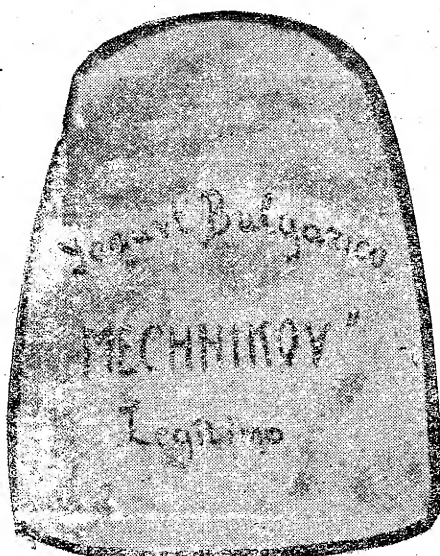 Yogurt Bulgarico
MECHNIKOV"
Legitimo